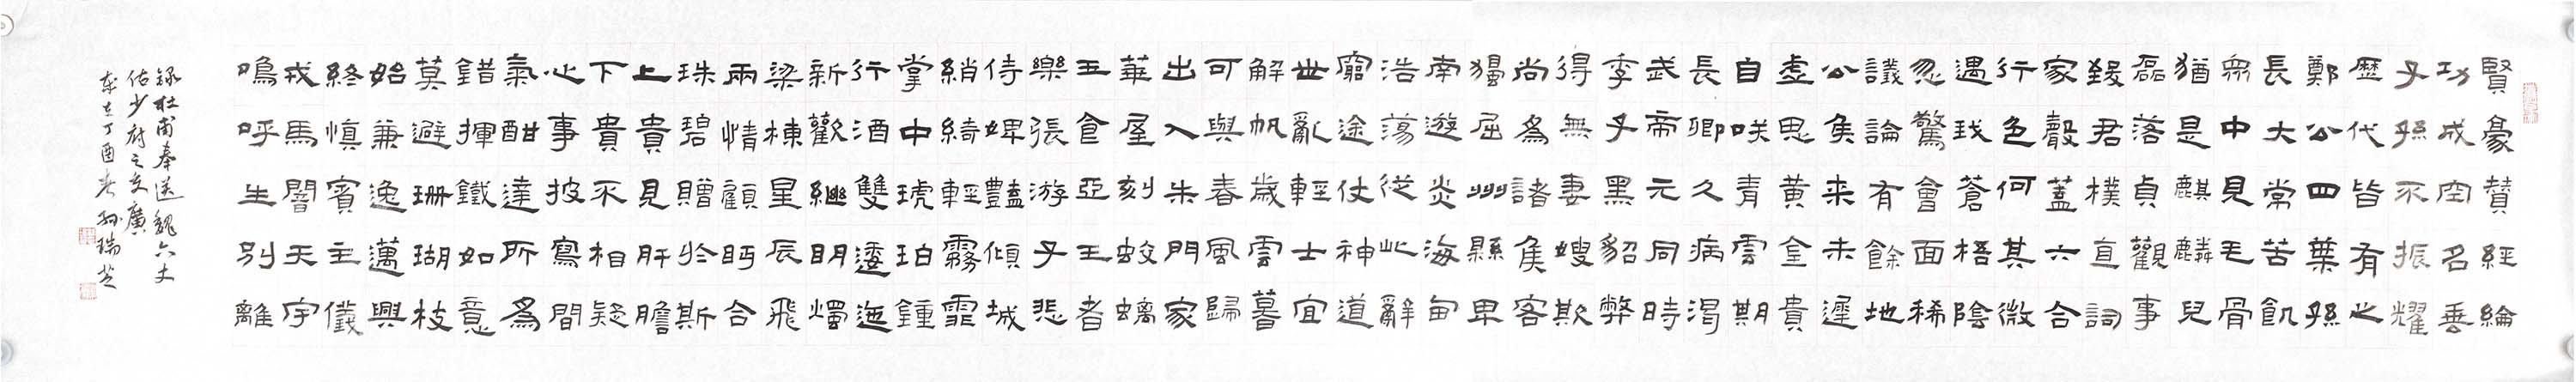 賢豪贊經綸
功成空名垂
子孫不振耀
歷代皆有之
鄭公四葉孫
長大常苦飢
眾中見毛骨
猶是麒麟兒
磊落貞觀事
致君樸直詞
家聲蓋六合
行色何其微
遇我蒼梧陰
忽驚會面稀
議論有餘地
公侯来未遲
虛思黃金貴
自咲青雲期
長卿久病渴
武帝元同時
季子黑貂弊
得無妻嫂欺
尚為諸侯客
獨屈州縣卑
南遊炎海甸
浩蕩從此辭
窮途仗神道
世亂輕土宜
解帆歲雲暮
可與春風歸
出入朱門家
華屋刻蛟螭
玉食亞王者
樂張游子悲
侍婢豔傾城
綃綺輕霧霏
掌中琥珀鍾
行酒雙逶迤
新歡繼明燭
梁棟星辰飛
兩情顧眄合
珠碧贈於斯
上貴見肝膽
下貴不相疑
心事披寫間
氣酣達所為
錯揮鐵如意
莫避珊瑚枝
始兼逸邁興
終慎賓主儀
戎馬闇天宇
嗚呼生別離
錄杜甫奉送魏六丈
佑少府之交廣
歲在丁酉春 孫瑞芝